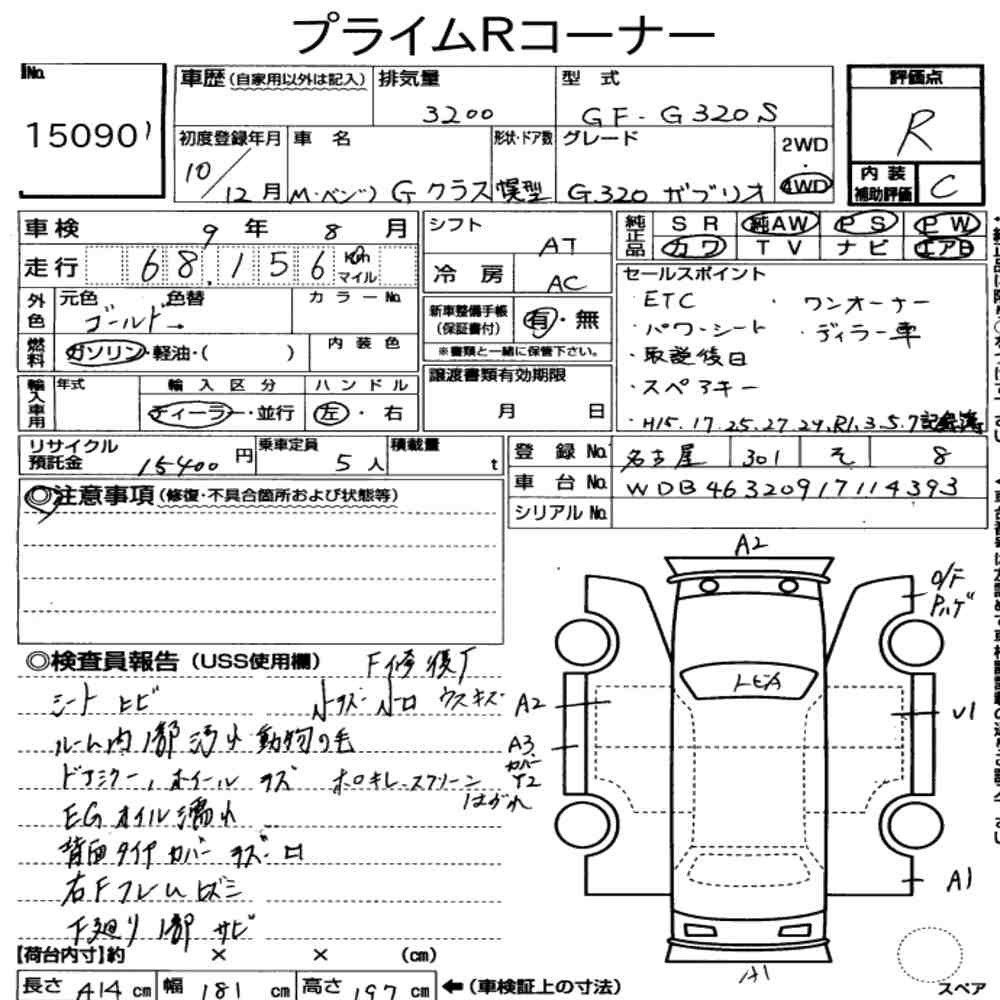 プライムRコーナー
No.
15090
車歴(自家用以外は記入)
排気量
3200
型 式
GF-G320S
評価点
R
内装
補助評価
C
初度登録年月
10/12月
車 名
M・ベンツ Gクラス 幌型
形状・ドア数
グレード
G320 カブリオ
2WD
・
4WD
車検
9年 8月
走行
68,156 Km マイル
外色
元色
ゴールド→
色替
カラーNo.
燃料
ガソリン・軽油・( )
内装色
輸入車用
年式
輸入区分
ディーラー・並行
ハンドル
左・右
シフト
AT
冷房
AC
新車整備手帳
(保証書付)
有・無
※書類と一緒に保管下さい。
譲渡書類有効期限
月 日
純正品
SR 純AW PS PW
カワ TV ナビ エアB
セールスポイント
・ETC
・ワンオーナー
・パワーシート
・ディラー車
・取説後日
・スペアキー
・H15.17.25.27.29.R1.3.5.7記録簿
リサイクル
預託金
15400円
乗車定員
5人
積載量
t
登録No.
名古屋 301 そ 8
車台No.
WDB46320917114393
シリアルNo.
◎注意事項(修復・不具合箇所および状態等)
◎検査員報告(USS使用欄)
F修復歴
シート ヒビ
ハンドルスレ
ウスキズ
ルーム内1部汚れ 動物の毛
ドアミラー、ホイール キズ
ホロキレ.スクリーン
はがれ
EGオイル漏れ
背面タイヤカバー キズ
右Fフレーム
下廻り1部 サビ
A2
O/F
Pハゲ
A2
U1
A3
カバー
Y2
A1
A1
スペア
【荷台内寸】約 × × (cm)
長さ 414 cm
幅 181 cm
高さ 197 cm
←(車検証上の寸法)